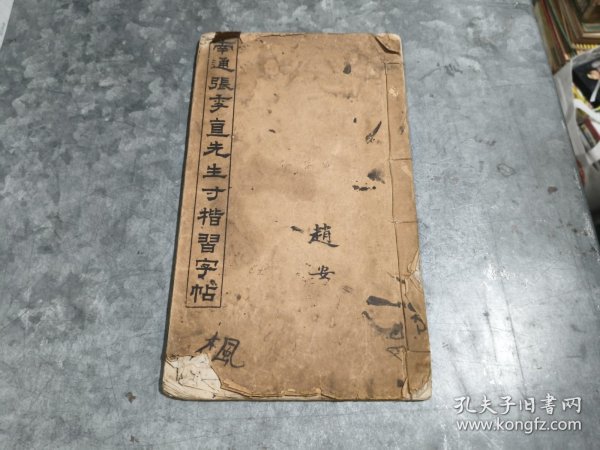 南通張季直先生寸楷習字帖
趙
安
楓
孔夫子旧书网
www.kongfz.com